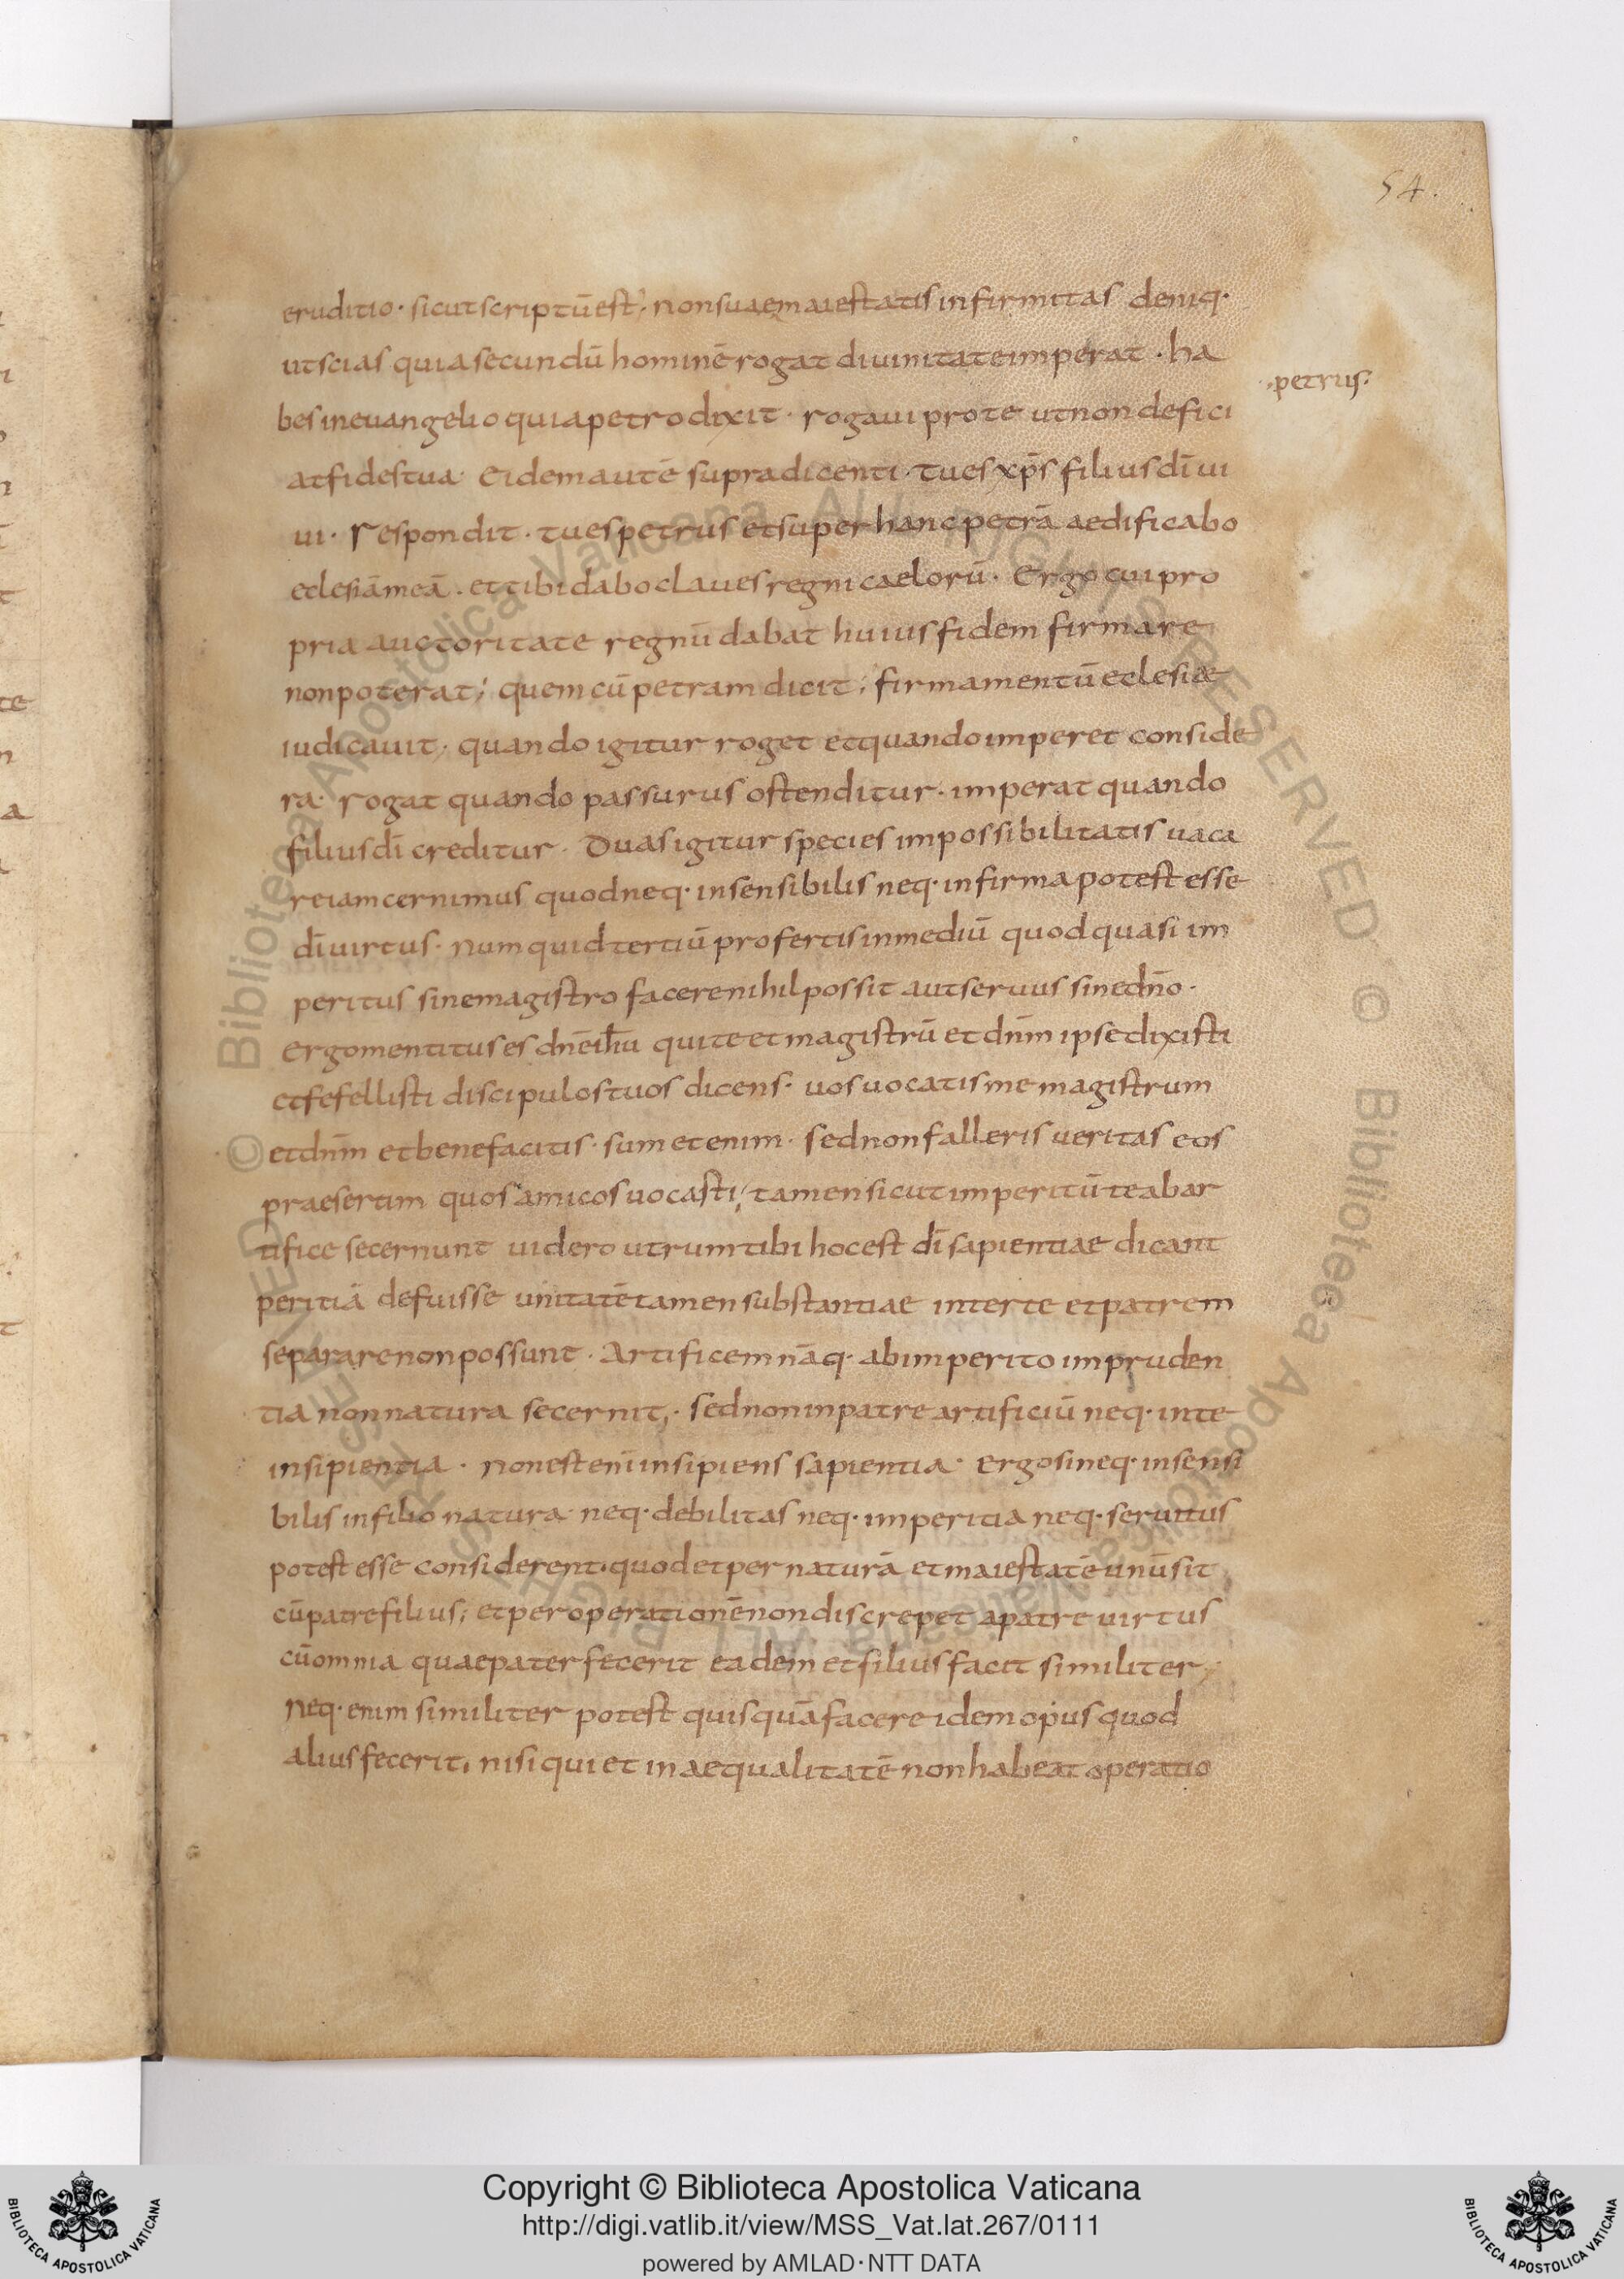 54.
eruditio· sicut scriptū est· non suae maiestatis infirmitas deniq·
ut scias quia secundū hominē rogat divinitate imperat · ha
·petrus·
bes in euangelio quia petro dixit · rogaui pro te ut non defici
at fides tua· Eidem autē supra dicenti · tu es xp̄s filius dī ui
ui· respondit · tu es petrus et super hanc petrā aedificabo
eclesiā meā · et tibi dabo claues regni caelorū· Ergo cui pro
pria auctoritate regnū dabat huius fidem firmare
non poterat; quem cū petram dicit; firmamentū eclesiae
iudicauit· quando igitur roget et quando imperet conside
ra· rogat quando passurus ostenditur· imperat quando
filius dī creditur · Duas igitur species impossibilitatis uaca
re iam cernimus quod neq· insensibilis neq· infirma potest esse
dī uirtus· Num quid tertiū profertis in mediū quod quasi im
peritus sine magistro facere nihil possit aut seruus sine dn̄o·
Ergo mentitus es dn̄e ih̄u qui te et magistrū et dn̄m ipse dixisti
et fefellisti discipulos tuos dicens· uos uocatis me magistrum
et dn̄m et bene facitis· sum etenim· sed non falleris ueritas eos
praesertim quos amicos uocasti; tamen sicut imperitū te ab ar
tifice secernunt uidero utrum tibi hoc est dī sapientiae dicant
peritiā defuisse unitatē tamen substantiae inter te et patrem
separare non possunt · Artificem nāq· ab imperito impruden
tia non natura secernit;· sed non in patre artificiū neq· in te
insipientia · non est enī insipiens sapientia· Ergo si neq· insensi
bilis in filio natura· neq· debilitas neq· imperitia neq· seruitus
potest esse considerent· quod et per naturā et maiestatē unū sit
cū patre filius; et per operationē non discrepet a patre uirtus
cū omnia quae pater fecerit eadem et filius facit similiter;
Neq· enim similiter potest quisquā facere idem opus quod
alius fecerit, nisi qui et inaequalitatē non habeat operatio
Copyright © Biblioteca Apostolica Vaticana
http://digi.vatlib.it/view/MSS_Vat.lat.267/0111
powered by AMLAD·NTT DATA